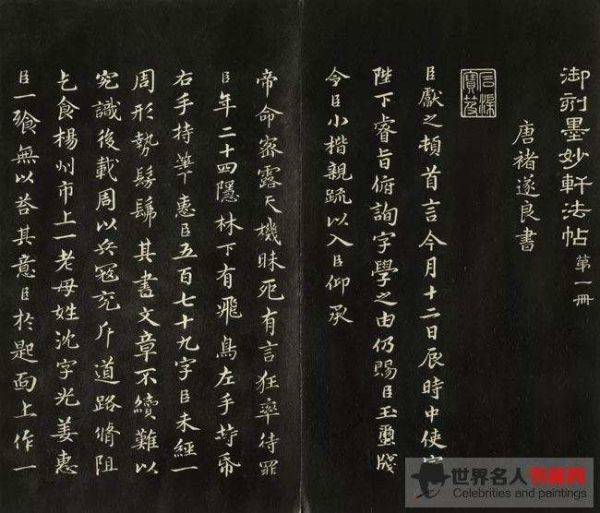 御刻墨妙軒法帖 第一冊
唐褚遂良書
石渠寶笈
臣獻之頓首言今月十二日辰時中使宣
陛下睿旨俯詢字學之由仍賜臣玉璽牋
令臣小楷親疏以入臣仰承
帝命密露天機昧死有言狂率待罪
臣年二十四隱林下有飛鳥左手持帋
右手持筆惠臣五百七十九字臣未經一
周形勢髣髴其書文章不續難以
究識後載周以兵寇充斥道路脩阻
乞食楊州市上一老母姓沈字光姜惠
臣一飡無以荅其意臣於匙面上作一
世界名人书画网
Celebrities and paintings